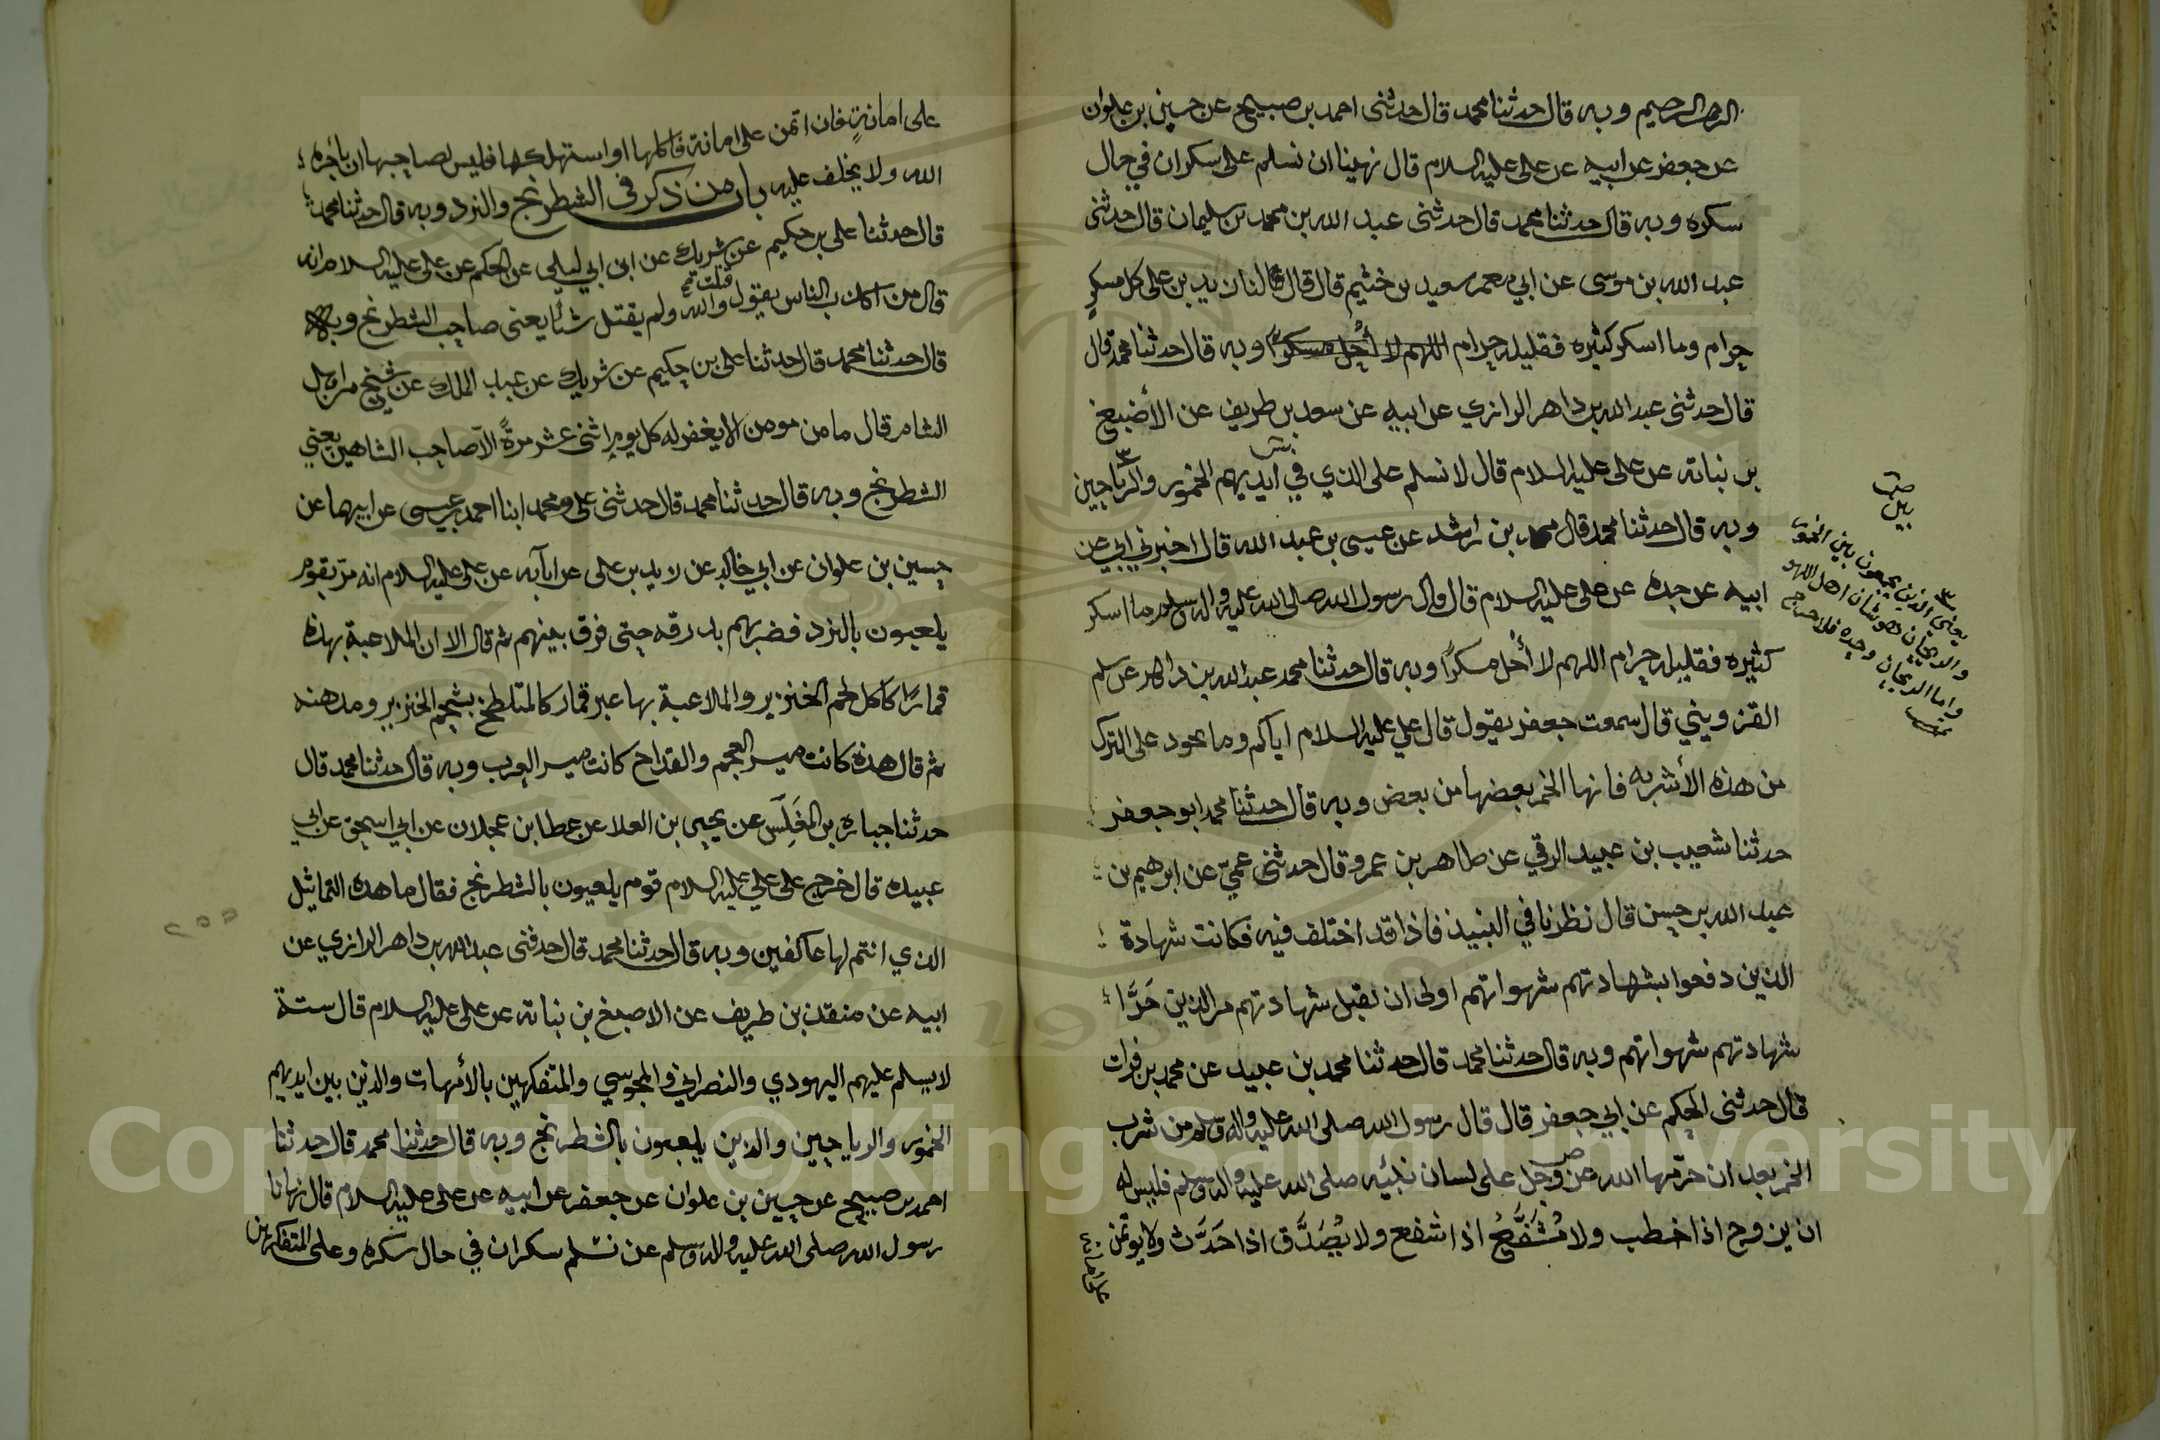 الرحمن الرحيم وبه قال حدثنا محمد قال حدثنى احمد بن صبيح عن حسين بن علوان
عن جعفر عن ابيه عن على عليه السلام قال نهينا ان نسلم على سكران في حال
سكره وبه قال حدثنا محمد قال حدثنى عبد الله بن محمد بن سليمان قال حدثنى
عبد الله بن موسى عن ابي معمر سعيد بن خثيم قال قال لنا زيد بن على كل مسكر
حرام وما اسكر كثيره فقليله حرام اللهم لا أحل مسكرا وبه قال حدثنا محمد قال
قال حدثنى عبد الله بن داهر الرازي عن ابيه عن سعد بن طريف عن الأصبغ
بن نباته عن على عليه السلام قال لا نسلم على الذي في ايديهم الخمور والرياحين
وبه قال حدثنا محمد قال محمد بن راشد عن عيسى بن عبد الله قال اخبرني ابي عن
ابيه عن جده عن على عليه السلام قال قال رسول الله صلى الله عليه واله وسلم ما اسكر
كثيره فقليله حرام اللهم لا أحل مسكرًا وبه قال حدثنا محمد عبد الله بن داهر عن سلم
القزويني قال سمعت جعفر يقول قال علي عليه السلام اياكم وما يجود على الترك
من هذه الأشربه فانها الخمر بعضها من بعض وبه قال حدثنا محمد ابو جعفر
حدثنا شعيب بن عبيد الرقي عن طاهر بن عمرو قال حدثنى عمي عن ابرهيم بن
عبد الله بن حسن قال نظرنا في النبيذ فاذا قد اختلف فيه فكانت شهادة
الذين دفعوا بشهادتهم شهواتهم اولى ان نقبل شهادتهم من الذين
شهادتهم شهواتهم وبه قال حدثنا محمد قال حدثنا محمد بن عبيد عن محمد بن فرات
قال حدثنى الحكم عن ابي جعفر قال قال رسول الله صلى الله عليه واله وسلم من شرب
الخمر بعد ان حرمها الله عز وجل على لسان نبيئه صلى الله عليه واله وسلم فليس له
ان يزوج اذا خطب ولا يُشَفَّعُ اذا شفع ولا يُصَدَّق اذا حَدَّث ولا يوتمن
على امانة
يعني الذين يجمعون بين الخمور
والريحان فهو شان اهل اللهو
واما الريحان وحده فلا حرج
على امانةٍ فان اتمن على امانة فاكلها او استهلكها فليس لصاحبها ان ياجره
الله ولا يخلف عليه باب من ذكر فى الشطرنج والنرد وبه قال حدثنا محمد
قال حدثنا على بن حكيم عن شريك عن ابن ابي ليلى عن الحكم عن على عليه السلام انه
قال من اكذب الناس يقول قتلت والله ولم يقتل شئا يعنى صاحب الشطرنج وبه
قال حدثنا محمد قال حدثنا على بن حكيم عن شريك عن عبد الملك عن شيخ من اهل
الشام قال ما من مومن الا يغفر له كل يوم اثنى عشر مرةً الا صاحب الشاهين يعني
الشطرنج وبه قال حدثنا محمد قال حدثنى على ومحمد ابنا احمد بن عيسى عن ابيهما عن
حسين بن علوان عن ابي خالد عن زيد بن على عن ابآيه عن على عليه السلام انه مر بقوم
يلعبون بالنرد فضربهم بدرقه حتى فرق بينهم ثم قال الا ان الملاعبة بهذه
قمارًا كاكل لحم الخنزير والملاعبة بها غير قمار كالمتلطخ بشحم الخنزير ومدهنه
ثم قال هذه كانت ميسر العجم والقداح كانت ميسر العرب وبه قال حدثنا محمد قال
حدثنا جباره بن المغلس عن يحيى بن العلا عن عطا بن عجلان عن ابي اسحق عن ابي
عبيده قال خرج على علي عليه السلام قوم يلعبون بالشطرنج فقال ما هذه التماثيل
الذي انتم لها عاكفين وبه قال حدثنا محمد قال حدثنى عبد الله بن داهر الرازي عن
ابيه عن منقذ بن طريف عن الاصبغ بن نباته عن على عليه السلام قال ستة
لا يسلم عليهم اليهودي والنصراني والمجوسي والمتفكهين بالأمهات والذين بين ايديهم
الخمور والرياحين والذين يلعبون بالشطرنج وبه قال حدثنا محمد قال حدثنا
احمد بن صبيح عن حسين بن علوان عن جعفر عن ابيه عن على عليه السلام قال نهانا
رسول الله صلى الله عليه واله وسلم عن نسلم سكران في حال سكره وعلى المتفكهين
Copyright © King Saud University